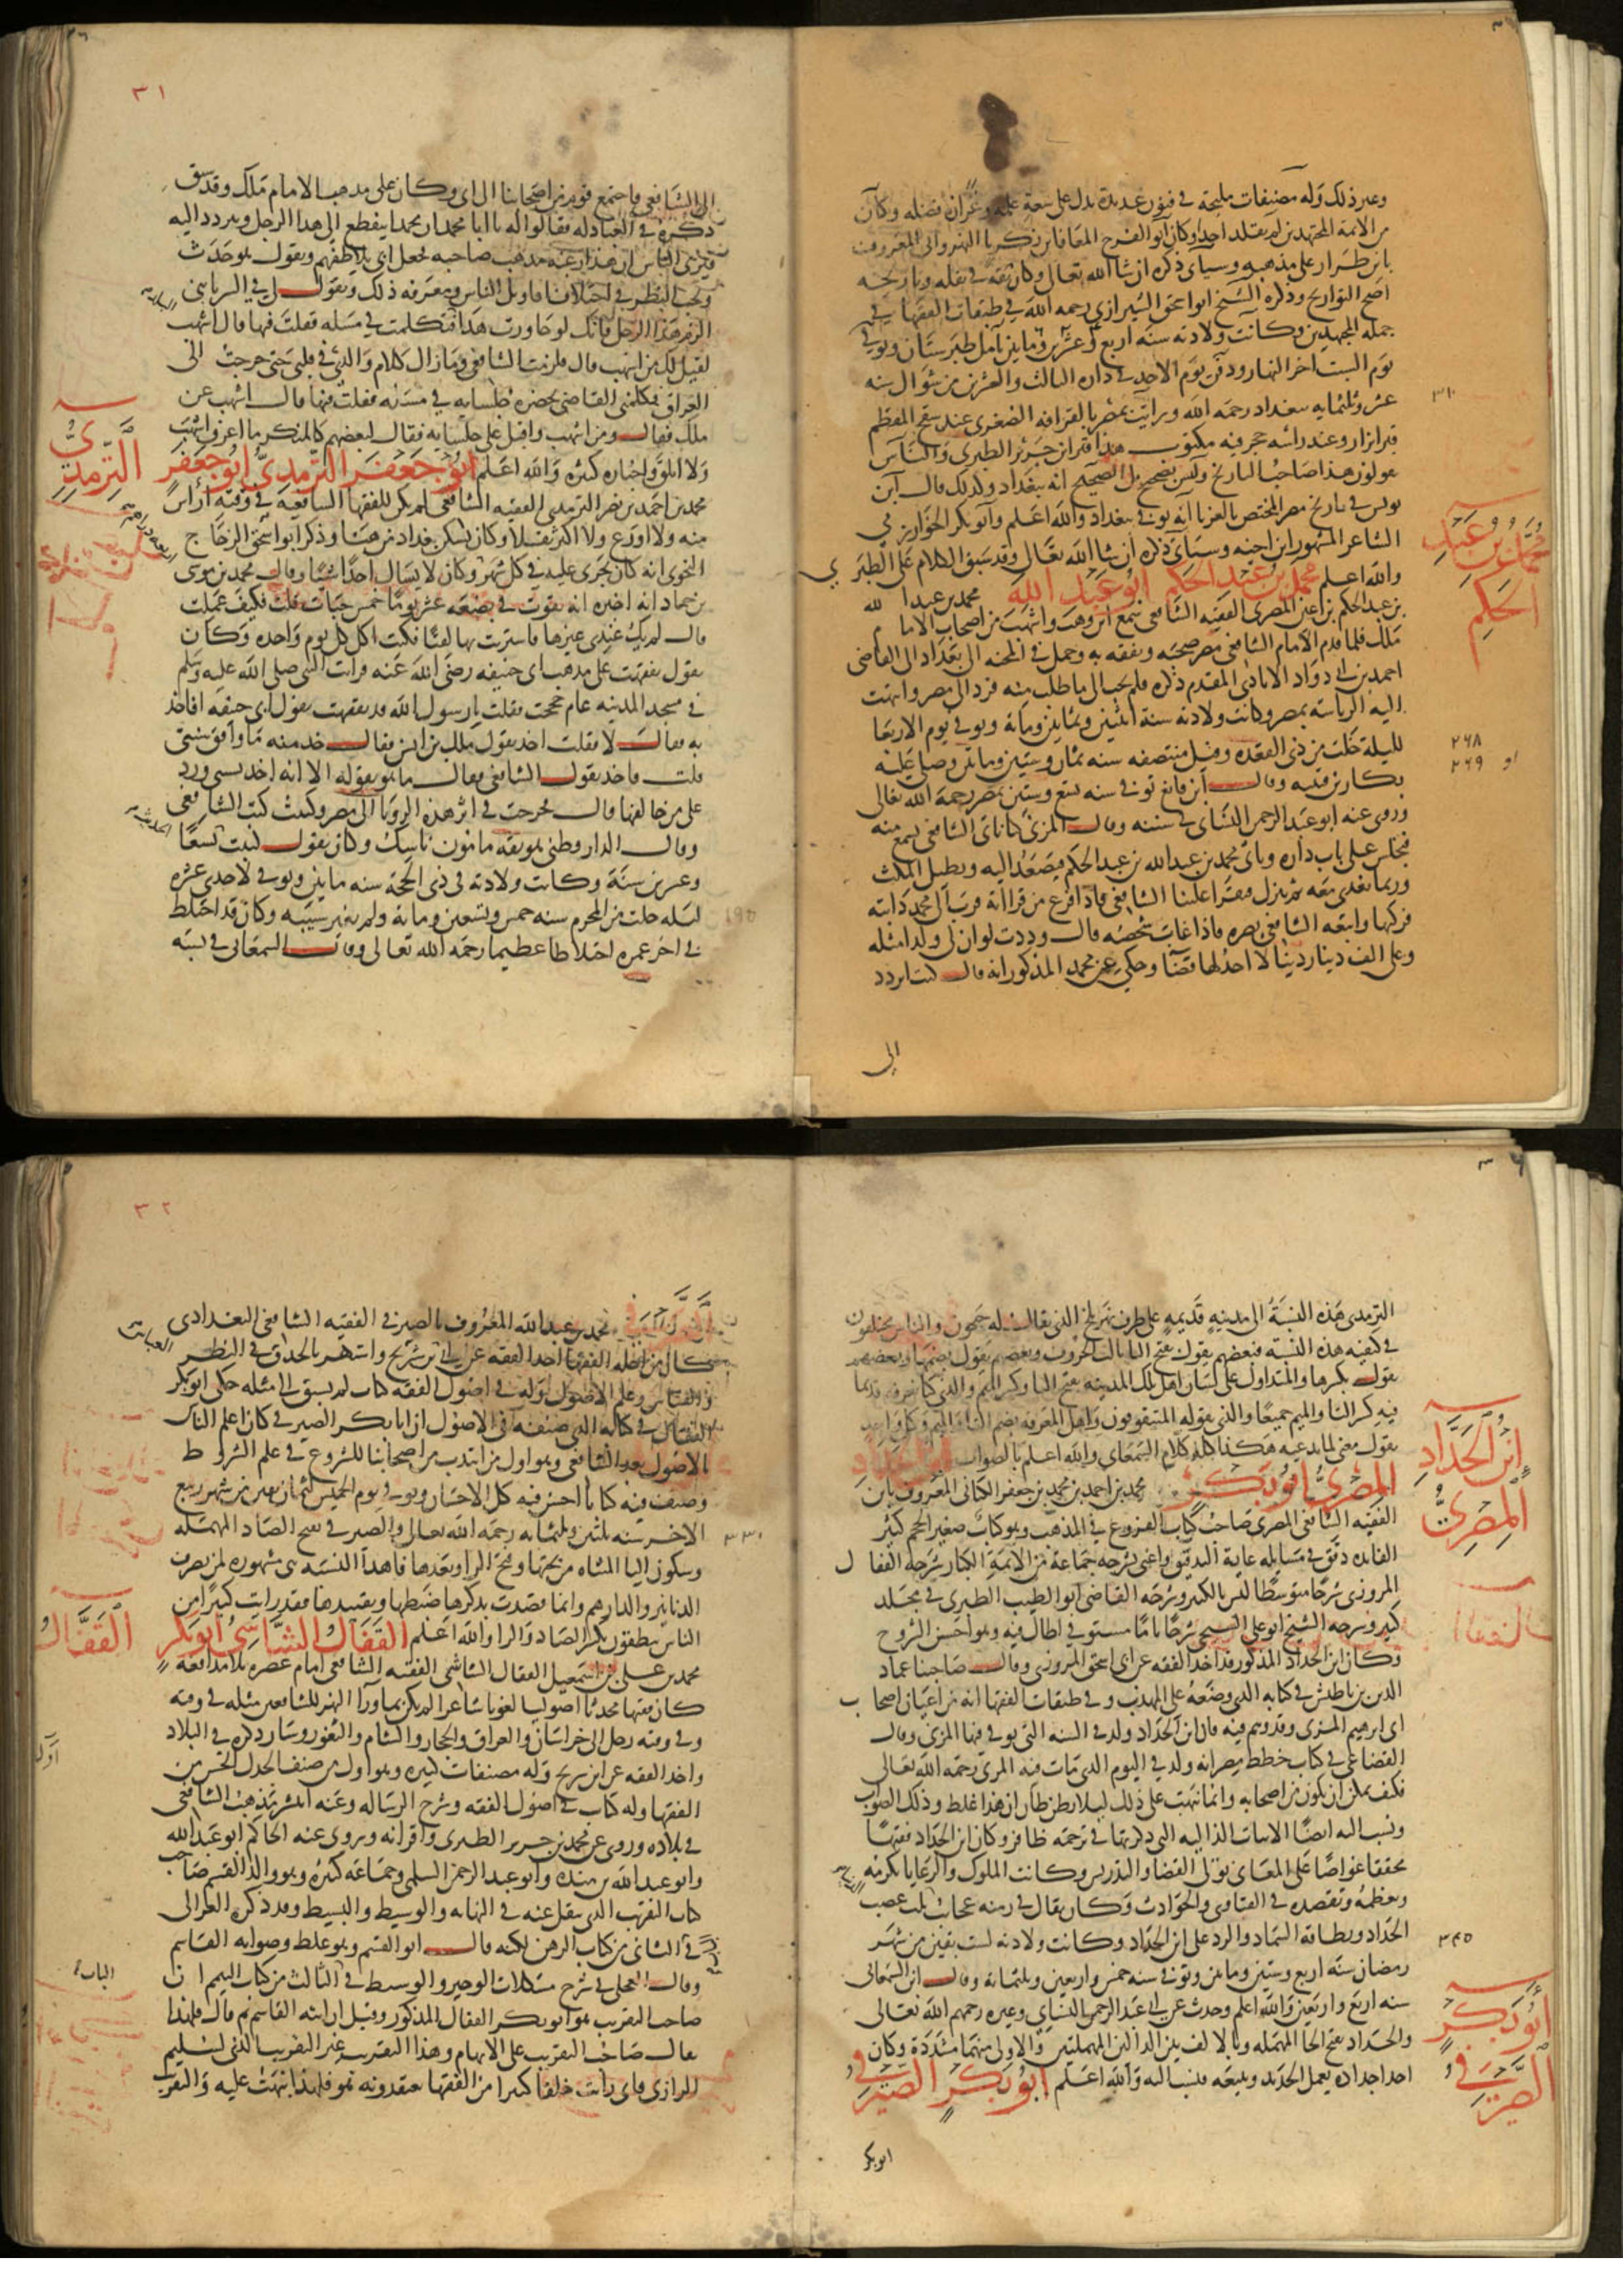 وغير ذلك وله مصنفات مليحة في فنون عديدة تدل على سعة علمه وغزارة فضله وكان
من الائمة المجتهدين لم يقلد احدا وكان ابو الفرج المعافا بن زكريا النهرواني المعروف
بابن طرار على مذهبه وسياتي ذكره ان شا الله تعالى وكان ثقة في نقله وتاريخه
اصح التواريخ وذكره الشيخ ابو اسحق الشيرازي رحمه الله في طبقات الفقها في
جملة المجتهدين وكانت ولادته سنة اربع وعشرين وماتين بآمل طبرستان وتوفي
يوم السبت اخر النهار ودفن يوم الاحد في داره السادس والعشرين من شوال سنه
عشر وثلثمايه ببغداد رحمه الله ورايت بمصر بالقرافه الصغرى عند سفح المقطم
قبرا يزار وعند راسه حجر فيه مكتوب هذا قبر ابن جرير الطبري والناس
يقولون هذا صاحب التاريخ وليس بصحيح بل الصحيح انه ببغداد ولذلك قال ابن
يونس في تاريخ مصر المختص بالغربا انه توفي ببغداد والله اعلم وابو بكر الخوارزمي
الشاعر المشهور ابن اخته وسياتي ذكره ان شا الله تعالى وقد سبق الكلام على الطبري
والله اعلم محمد بن عبد الحكم ابو عبد الله محمد بن عبد الله
بن عبد الحكم بن اعين المصري الفقيه الشافعي سمع ابن وهب واشهب من اصحاب الامام
ملك فلما قدم الامام الشافعي مصر صحبه وتفقه به وحمل في المحنه الى بغداد الى القاضي
احمد بن ابي دواد الايادي المقدم ذكره فلم يجب الى ما طلب منه فرد الى مصر وانتهت
اليه الرياسه بمصر وكانت ولادته سنة اثنين وثمانين ومائة وتوفي يوم الاربعا
لليلة خلت من ذي القعده وقيل منتصفه سنه ثمان وستين وماتين وصلى عليه
بكار بن قتيبه وقال ابن قانع توفي سنه تسع وستين بمصر رحمه الله تعالى
وروى عنه ابو عبد الرحمن النساي في سننه وقال المزني كنا ناتي الشافعي نسمع منه
فنجلس على باب داره وياتي محمد بن عبد الله بن عبد الحكم فيصعد اليه ويطيل المكث
وربما تغدى معه ثم ينزل فيقرا علينا الشافعي فاذا فرغ من قراءته قرب الى محمد دابته
فركبها واتبعه الشافعي بصره فاذا غاب شخصه قال وددت لو ان لي ولدا مثله
وعلي الف دينار دينا لا اجد لها قضا وحكي عن محمد المذكور انه قال كنت اتردد
الى
محمد بن عبد
الحكم
٣١٠
٢٦٨
او ٢٦٩
٣١
الى الشافعي فاجتمع قوم من اصحابنا الى ابي وكان على مذهب الامام ملك وقد سبق
ذكره في العبادله فقالوا له يا ابا محمد ان محمدا ينقطع الى هذا الرجل ويتردد اليه
فيرى الناس ان هذا رغبه عن مذهب صاحبه فجعل ابي يلاطفهم ويقول هو حدث
ويحب النظر في اختلاف اقاويل الناس ومعرفه ذلك ويقول لي في السر يا بني
الزم هذا الرجل فانك لو جاورت هذا فتكلمت في مسله فقلت فيها قال اشهب
لقيل لك من اشهب قال فلزمت الشافعي وما زال كلام والدي في قلبي حتى خرجت الى
العراق فكلمني القاضي بحضرة جلسايه في مسئله فقلت فيها قال اشهب عن
ملك فقال ومن اشهب واقبل على جلسايه فقال لبعضهم كالمنكر ما اعرف اشهب
ولا ابلق واخباره كثيره والله اعلم ابو جعفر الترمذي ابو جعفر
محمد بن احمد بن نصر الترمذي الفقيه الشافعي لم يكن للفقها الشافعيه في وقته اراس
منه ولا اورع ولا اكثر تقللا وكان يسكن بغداد وذكر ابو اسحق الزجاج
النحوي انه كان يجرى عليه في كل شهر وكان لا يسال احدا شيا وقال محمد بن موسى
بن حماد انه اخبره انه تقوت في بضعة عشر يوما خمس حبات قلت فكيف عملت
قال لم يك عندي غيرها فاشتريت بها لفتا فكنت اكل كل يوم واحده وكان
يقول تفقهت على مذهب ابي حنيفه رضي الله عنه فرايت النبي صلى الله عليه وسلم
في مسجد المدينه عام حججت فقلت يا رسول الله قد تفقهت بقول ابي حنيفه افاخذ
به فقال لا فقلت اخذ بقول ملك بن انس فقال خذ منه ما وافق سنتي
قلت فاخذ بقول الشافعي فقال ما هو بقوله الا انه اخذ بسنتي ورد
على من خالفها قال فخرجت في اثر هذه الرويا الى مصر وكتبت كتب الشافعي
وقال الدارقطني هو ثقه مامون ناسك وكان يقول كتبت تسعا
وعشرين سنة وكانت ولادته في ذي الحجة سنه ماتين وتوفي لاحدى عشره
ليله خلت من المحرم سنه خمس وتسعين وماية ولم يغير شيبه وكان قد اختلط
في اخر عمره اختلاطا عظيما رحمه الله تعالى وقال السمعاني في نسبه
الترمذي
الترمذي هذه النسبة الى مدينة قديمه على طرف نهر بلخ الذي يقال له جيحون والناس يختلفون
في كيفيه هذه النسبة فبعضهم يقول بفتح التا ثالث الحروف وبعضهم يقول بضمها وبعضهم
يقول بكسرها والمتداول على لسان اهل تلك المدينه بفتح التا وكسر الميم والذي كنا نعرفه قديما
فيه كسر التا والميم جميعا والذي يقوله المتنوقون واهل المعرفه بضم التا والميم وكل واحد
يقول معنى لما يدعيه هكذا كله كلام السمعاني والله اعلم بالصواب
المصري ابو بكر محمد بن احمد بن محمد بن جعفر الكناني المعروف بابن
الفقيه الشافعي المصري صاحب كتاب الفروع في المذهب وهو كتاب صغير الحجم كثير
الفايده دقق في مسايله غاية التدقيق واعتنى بشرحه جماعة من الائمة الكبار شرحه القفال
المروزي شرحا متوسطا ليس بالكبير وشرحه القاضي ابو الطيب الطبري في مجلد
كبير وشرحه الشيخ ابو علي السنجي شرحا تاما مستوفى اطال فيه وهو احسن الشروح
وكان ابن الحداد المذكور قد اخذ الفقه عن ابي اسحق المروزي وقال صاحبنا عماد
الدين بن باطيش في كتابه الذي وضعه على المهذب وفي طبقات الفقها انه من اعيان اصحاب
ابي ابرهيم المزني وقد وهم فيه فان ابن الحداد ولد في السنه التي توفي فيها المزني وقال
القضاعي في كتاب خطط مصر انه ولد في اليوم الذي مات فيه المزني رحمه الله تعالى
فكيف يمكن ان يكون من اصحابه وانما نبهت على ذلك ليلا يظن ظان ان هذا غلط وذلك الصواب
ونسب اليه ايضا الابيات الذاليه التي ذكرتها في ترجمة ظافر وكان ابن الحداد فقيها
محققا غواصا على المعاني تولى القضا والتدريس وكانت الملوك والرعايا تكرمه
وتعظمه وتقصده في الفتاوى والحوادث وكان يقال في زمنه عجائب ثلث غضب
الجلاد ونظافة السماد والرد على ابن الحداد وكانت ولادته لست بقين من شهر
رمضان سنة اربع وستين وماتين وتوفي سنه خمس واربعين وثلثمائة وقال ابن السمعاني
سنه اربع واربعين والله اعلم وحدث عن ابي عبد الرحمن النساي وغيره رحمهم الله تعالى
والحداد بفتح الحا المهمله وبالالف بين الدالين المهملتين والاولى منهما مشددة وكان
احد اجداده يعمل الحديد ويبيعه فنسب اليه والله اعلم ابو بكر الصيرفي
ابو بكر
ابن الحداد
المصري
٣٤٥
ابو بكر
الصيرفي
٣٢
محمد بن عبد الله المعروف بالصيرفي الفقيه الشافعي البغدادي
كان من جلة الفقها اخذ الفقه عن ابن سريج واشتهر بالحذق في النظر
والقياس وعلم الاصول وله في اصول الفقه كتاب لم يسبق الى مثله حكى ابو بكر
القفال في كتابه الذي صنفه في الاصول ان ابا بكر الصيرفي كان اعلم الناس
بالاصول بعد الشافعي وهو اول من انتدب من اصحابنا للشروع في علم الشروط
وصنف فيه كتابا احسن فيه كل الاحسان وتوفي يوم الخميس لثمان بقين من شهر ربيع
الاخر سنه ثلثين وثلثمايه رحمه الله تعالى والصيرفي بفتح الصاد المهمله
وسكون اليا المثناه من تحتها وفتح الرا وبعدها فا هذا النسبه مشهوره لمن يصرف
الدنانير والدراهم وانما قصدت بذكرها ضبطها وتقييدها فقد رايت كثيرا من
الناس ينطقون بكسر الصاد والرا والله اعلم القفال الشاشي ابو بكر
محمد بن علي بن اسمعيل القفال الشاشي الفقيه الشافعي امام عصره بلا مدافعه
كان فقيها محدثا اصوليا لغويا شاعرا لم يكن بما ورآ النهر للشافعيين مثله في وقته
وفي وقته رحل الى خراسان والعراق والحجاز والشام والثغور وسار ذكره في البلاد
واخذ الفقه عن ابن سريج وله مصنفات كثيره وهو اول من صنف الجدل الحسن من
الفقها وله كتاب في اصول الفقه وشرح الرساله وعنه انتشر مذهب الشافعي
في بلاده وروى عن محمد بن جرير الطبري واقرانه وروى عنه الحاكم ابو عبد الله
وابو عبد الله بن منده وابو عبد الرحمن السلمي وجماعه كثيره وهو والد القسم صاحب
كتاب التقريب الذي ينقل عنه في النهايه والوسيط والبسيط وقد ذكره الغزالي
في الثاني من كتاب الرهن لكنه قال ابو القسم وهو غلط وصوابه القاسم
وقال العجلي في شرح مشكلات الوجيز والوسيط في الثالث من كتاب التيمم ان
صاحب التقريب هو ابو بكر القفال المذكور وقيل ان ابنه القاسم ثم قال فلهذا
يقال صاحب التقريب على الابهام وهذا التقريب غير التقريب الذي لسليم
الرازي فاني رايت خلقا كثيرا من الفقها يعتقدونه هو فلهذا نبهت عليه والتقريب
٣٣٠
القفال